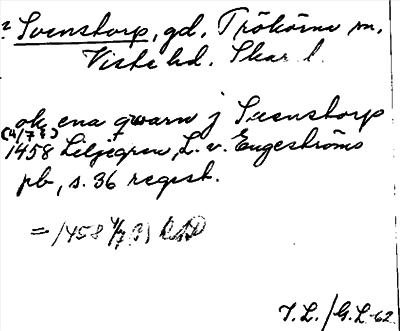 ? Svenstorp, gd, Trökörna sn.
Viste hd. Skar. l.
ok ena qwarn j Swenstorp
(4/7 ?)
1458 Liljegren, L. v. Engeströms
pb, s. 36 regest.
= 1458 4/7 (?) RAp
I.L./G.L-62